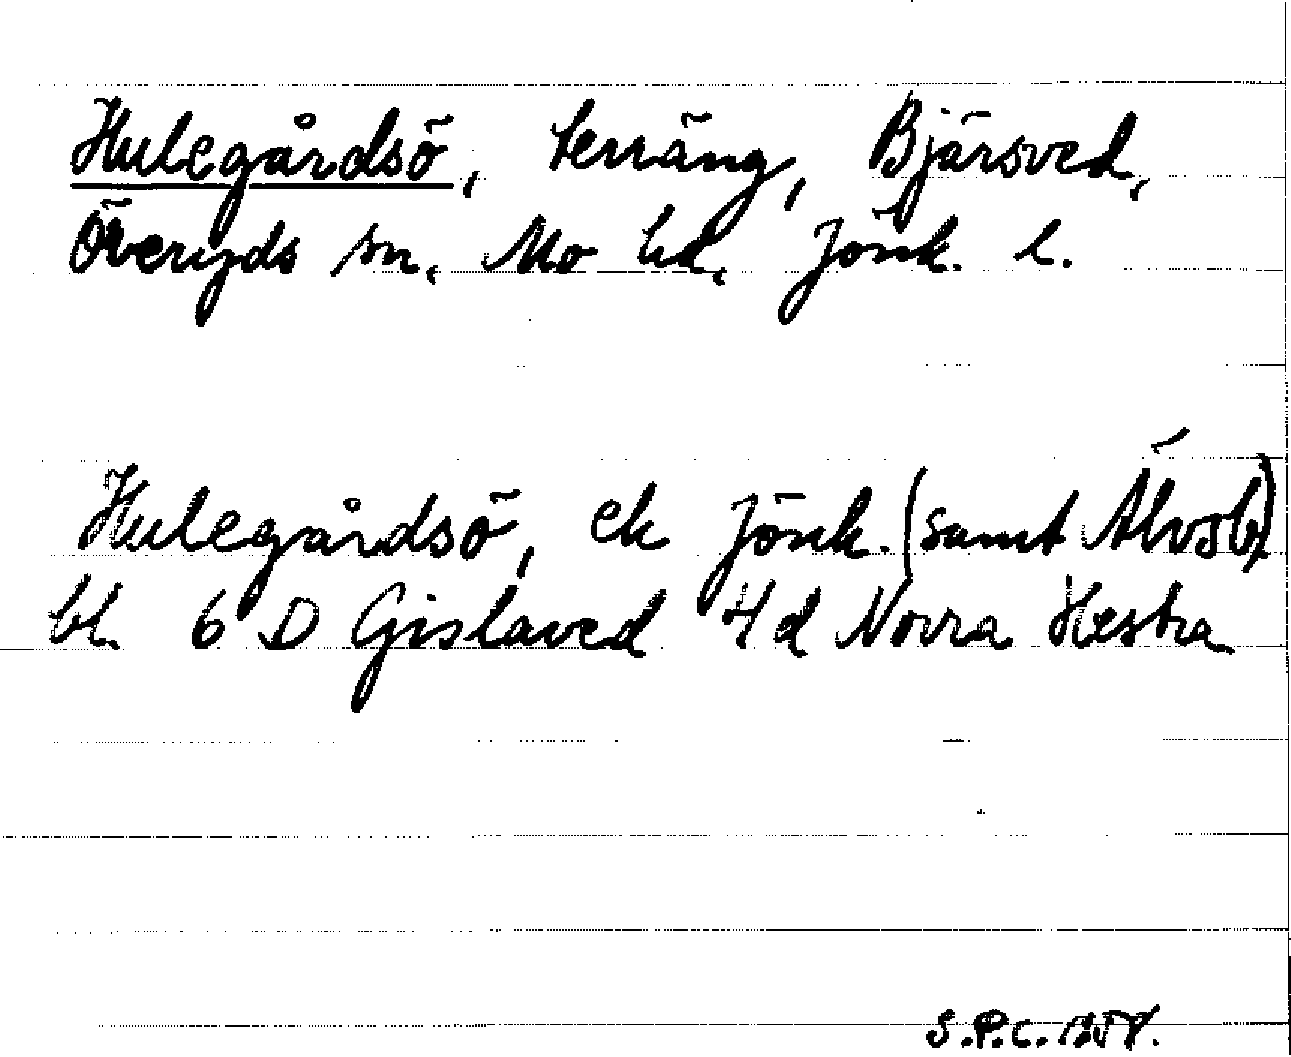 Hulegårdsö, terräng, Bjärsved,
Öreryds sn. Mo hd. Jönk. l.
Hulegårdsö, ek Jönk. (samt Älvsb)
bl. 6 D Gislaved 4 d Norra Hestra
S.P.C.